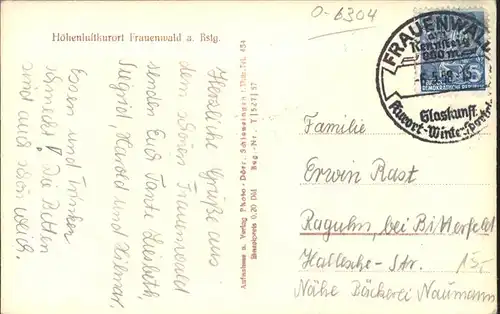 Höhenluftkurort Frauenwald a. Rstg.
Herzliche Grüße aus
dem schönen Frauenwald
senden Euch Tante Liesbeth,
Siegrid, Harold und Hilmar.
Essen und Trinken
schmeckt! Die Betten
sind auch schön weich.
Aufnahme u. Verlag Photo-Dörr, Schleusingen i. Thür. Tel. 454
Einzelpreis 0,20 DM Reg.-Nr.
0-6304
FRAUENWALD
am
Rennsteig
800 m
Glaskunst
Kurort-Wintersportort
DEMOKRATISCHE
5
Familie
Erwin Rast
Raguhn, bei Bitterfeld
Hallesche-Str.
15,-
Nähe Bäckerei Naumann